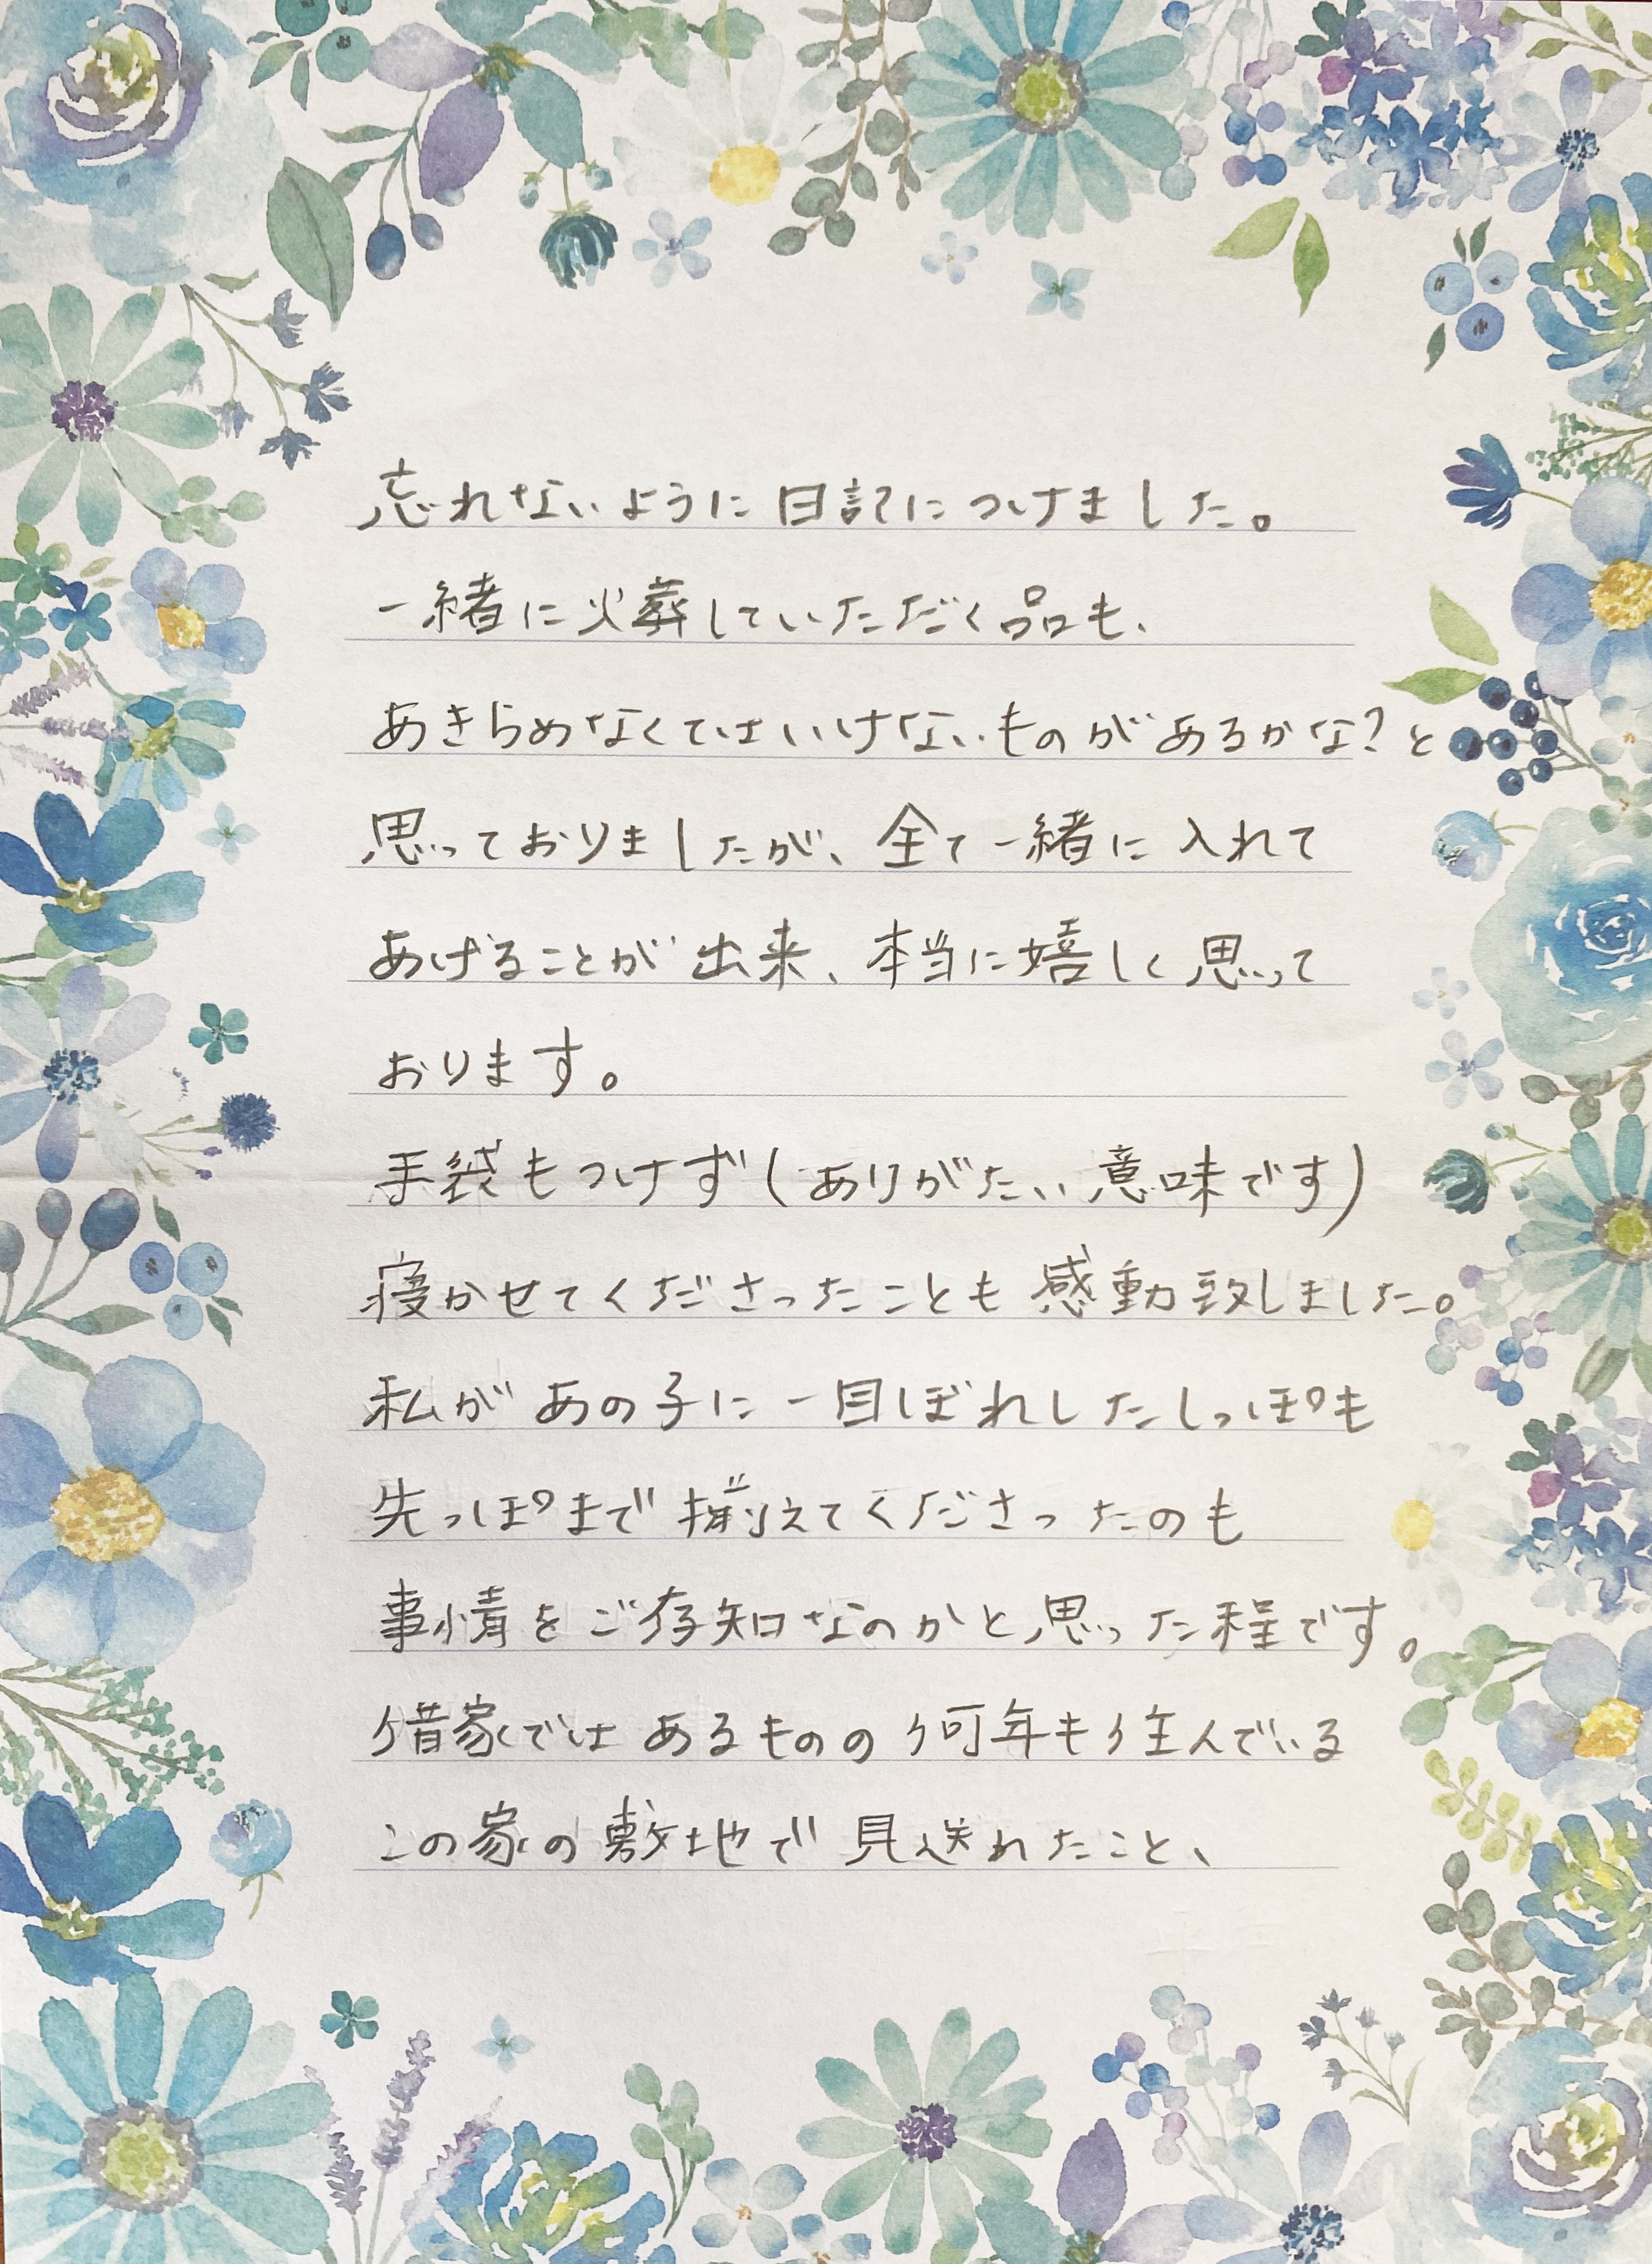 忘れないように日記につけました。
一緒に火葬していただく品も、
あきらめなくてはいけないものがあるかな？と
思っておりましたが、全て一緒に入れて
あげることが出来、本当に嬉しく思って
おります。
手袋もつけず(ありがたい意味です)
寝かせてくださったことも感動致しました。
私があの子に一目ぼれしたしっぽも
先っぽまで揃えてくださったのも
事情をご存知なのかと思った程です。
借家ではあるものの何年も住んでいる
この家の敷地で見送れたこと、